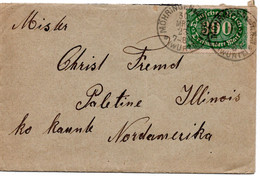 Mister
Christ Fremd
Paletine Illinois
ko kaunte Nordamerika
300